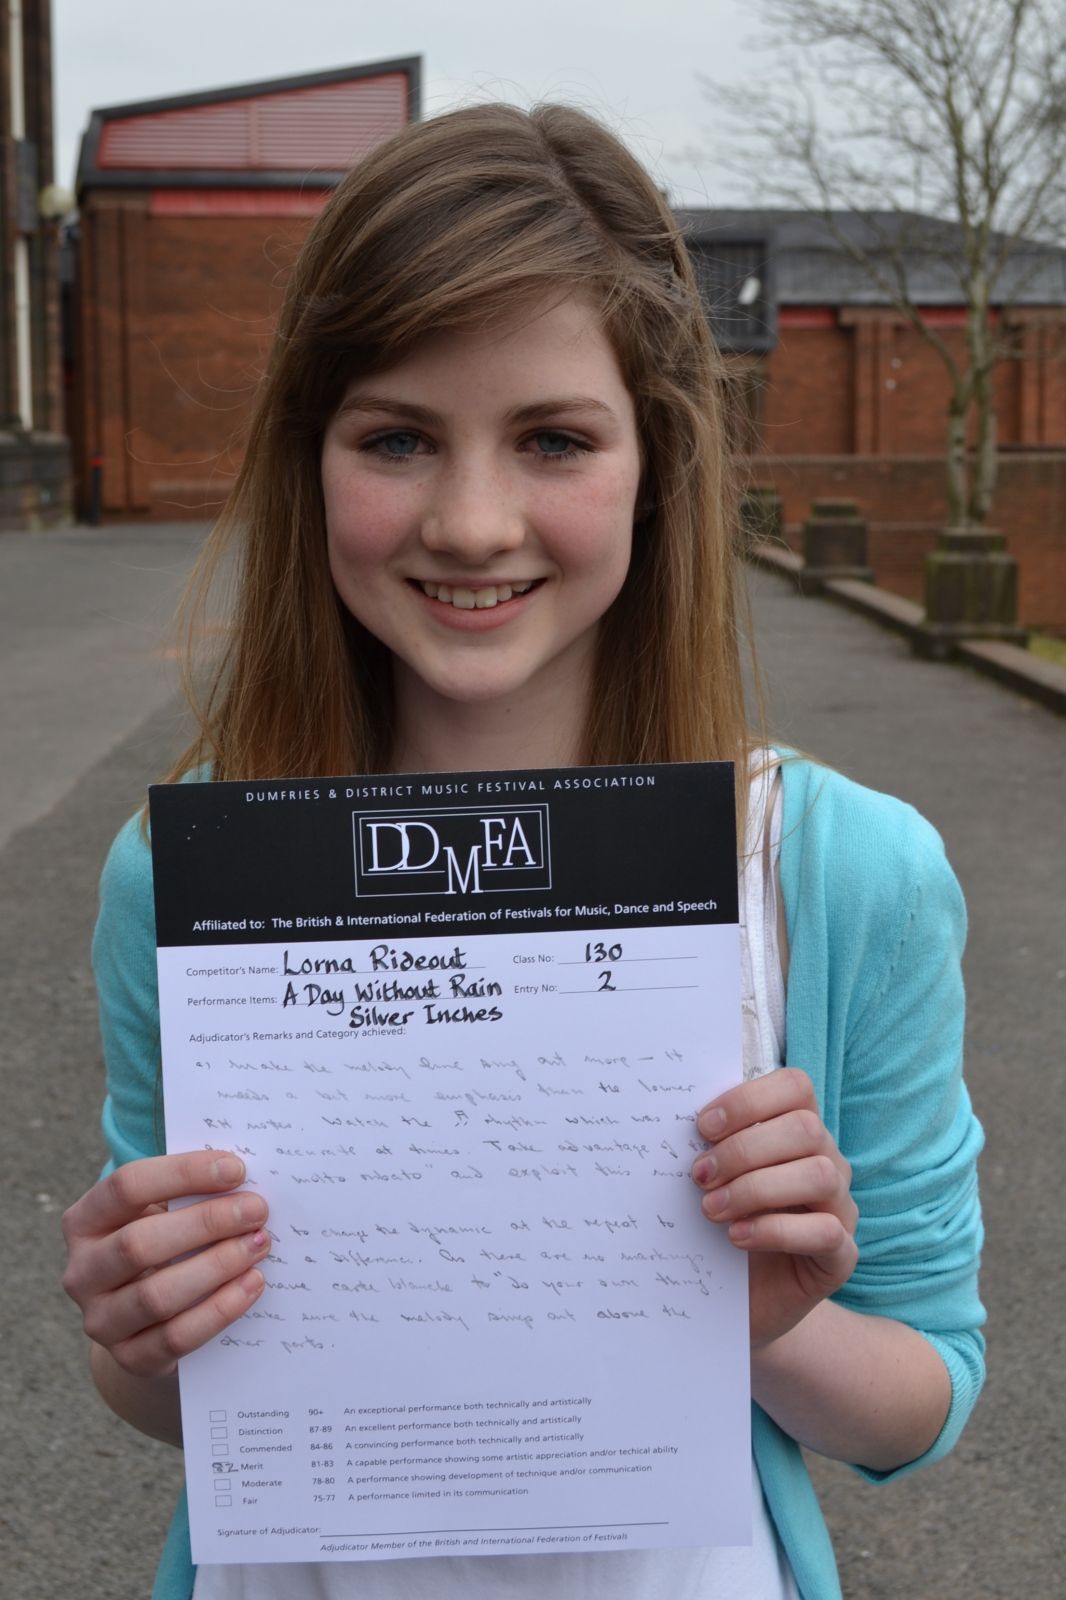 DUMFRIES & DISTRICT MUSIC FESTIVAL ASSOCIATION
DDMFA
Affiliated to: The British & International Federation of Festivals for Music, Dance and Speech
Competitor's Name: Lorna Rideout Class No: 130
Performance Items: A Day Without Rain Entry No: 2
Silver Inches
Adjudicator's Remarks and Category achieved:
a) Make the melody line sing out more – it
needs a bit more emphasis than the lower
RH notes. Watch the ♫ rhythm which was
accurate at times. Take advantage of
"molto rubato" and exploit this
to change the dynamic at the repeat to
a difference. As there are no markings
have carte blanche to "do your own thing".
sure the melody sings out above the
other parts.
Outstanding 90+ An exceptional performance both technically and artistically
Distinction 87-89 An excellent performance both technically and artistically
Commended 84-86 A convincing performance both technically and artistically
82 Merit 81-83 A capable performance showing some artistic appreciation and/or techical ability
Moderate 78-80 A performance showing development of technique and/or communication
Fair 75-77 A performance limited in its communication
Signature of Adjudicator:
Adjudicator Member of the British and International Federation of Festivals